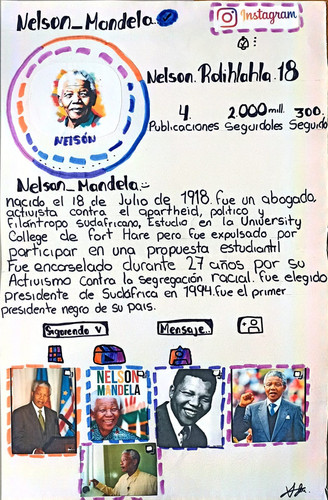 Nelson_Mandela
Instagram
Nelson.Rolihlahla.18
NELSÓN
4. 2.000 mill. 300.
Publicaciones Seguidoles Seguido
Nelson_Mandela
nacido el 18 de Julio de 1918. fue un abogado,
activista contra el apartheid, político y
filántropo sudafricano, Estudio en la University
College de Fort Hare pero Fue expulsado por
participar en una propuesta estudiantil
Fue encarselado durante 27 años por su
Activismo contra la segregación racial. fue elegido
presidente de Sudáfrica en 1994. fue el primer
presidente negro de su pais.
Siguiendo v Mensaje..
NELSON
MANDELA